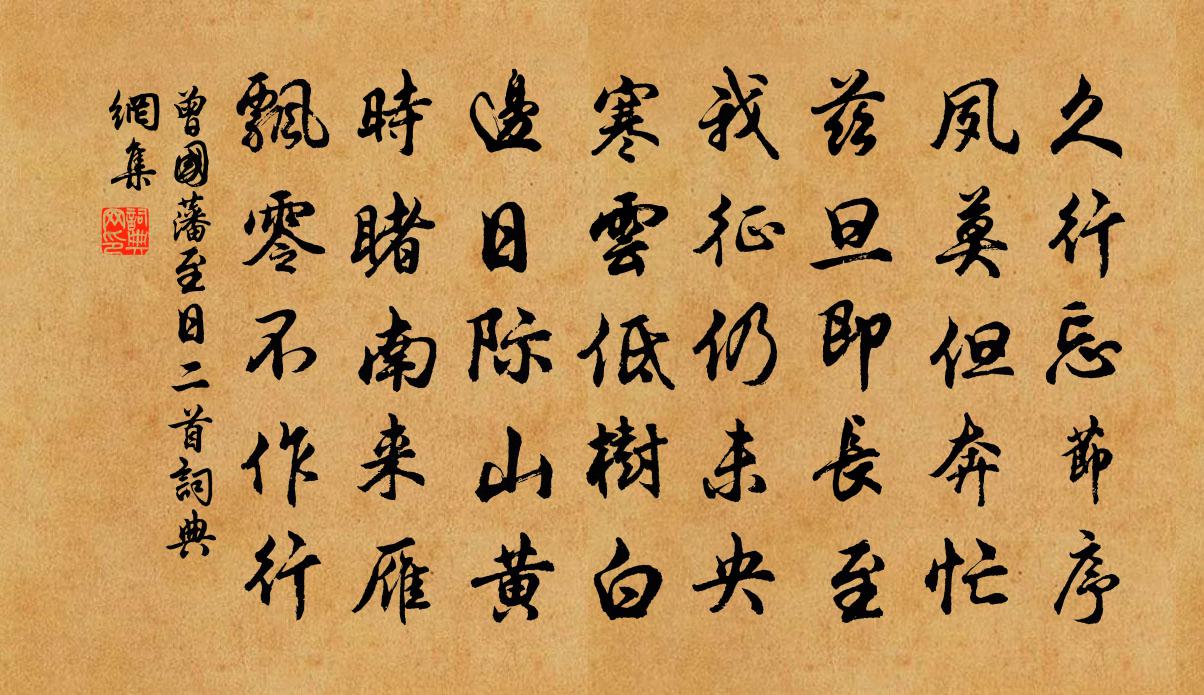 久行忘節序
夙莫但奔忙
兹旦即長至
我征仍未央
寒雲低樹白
邊日際山黄
時睹南来雁
飄零不作行
曾國藩至日二首詞典
網集
詞典
网印